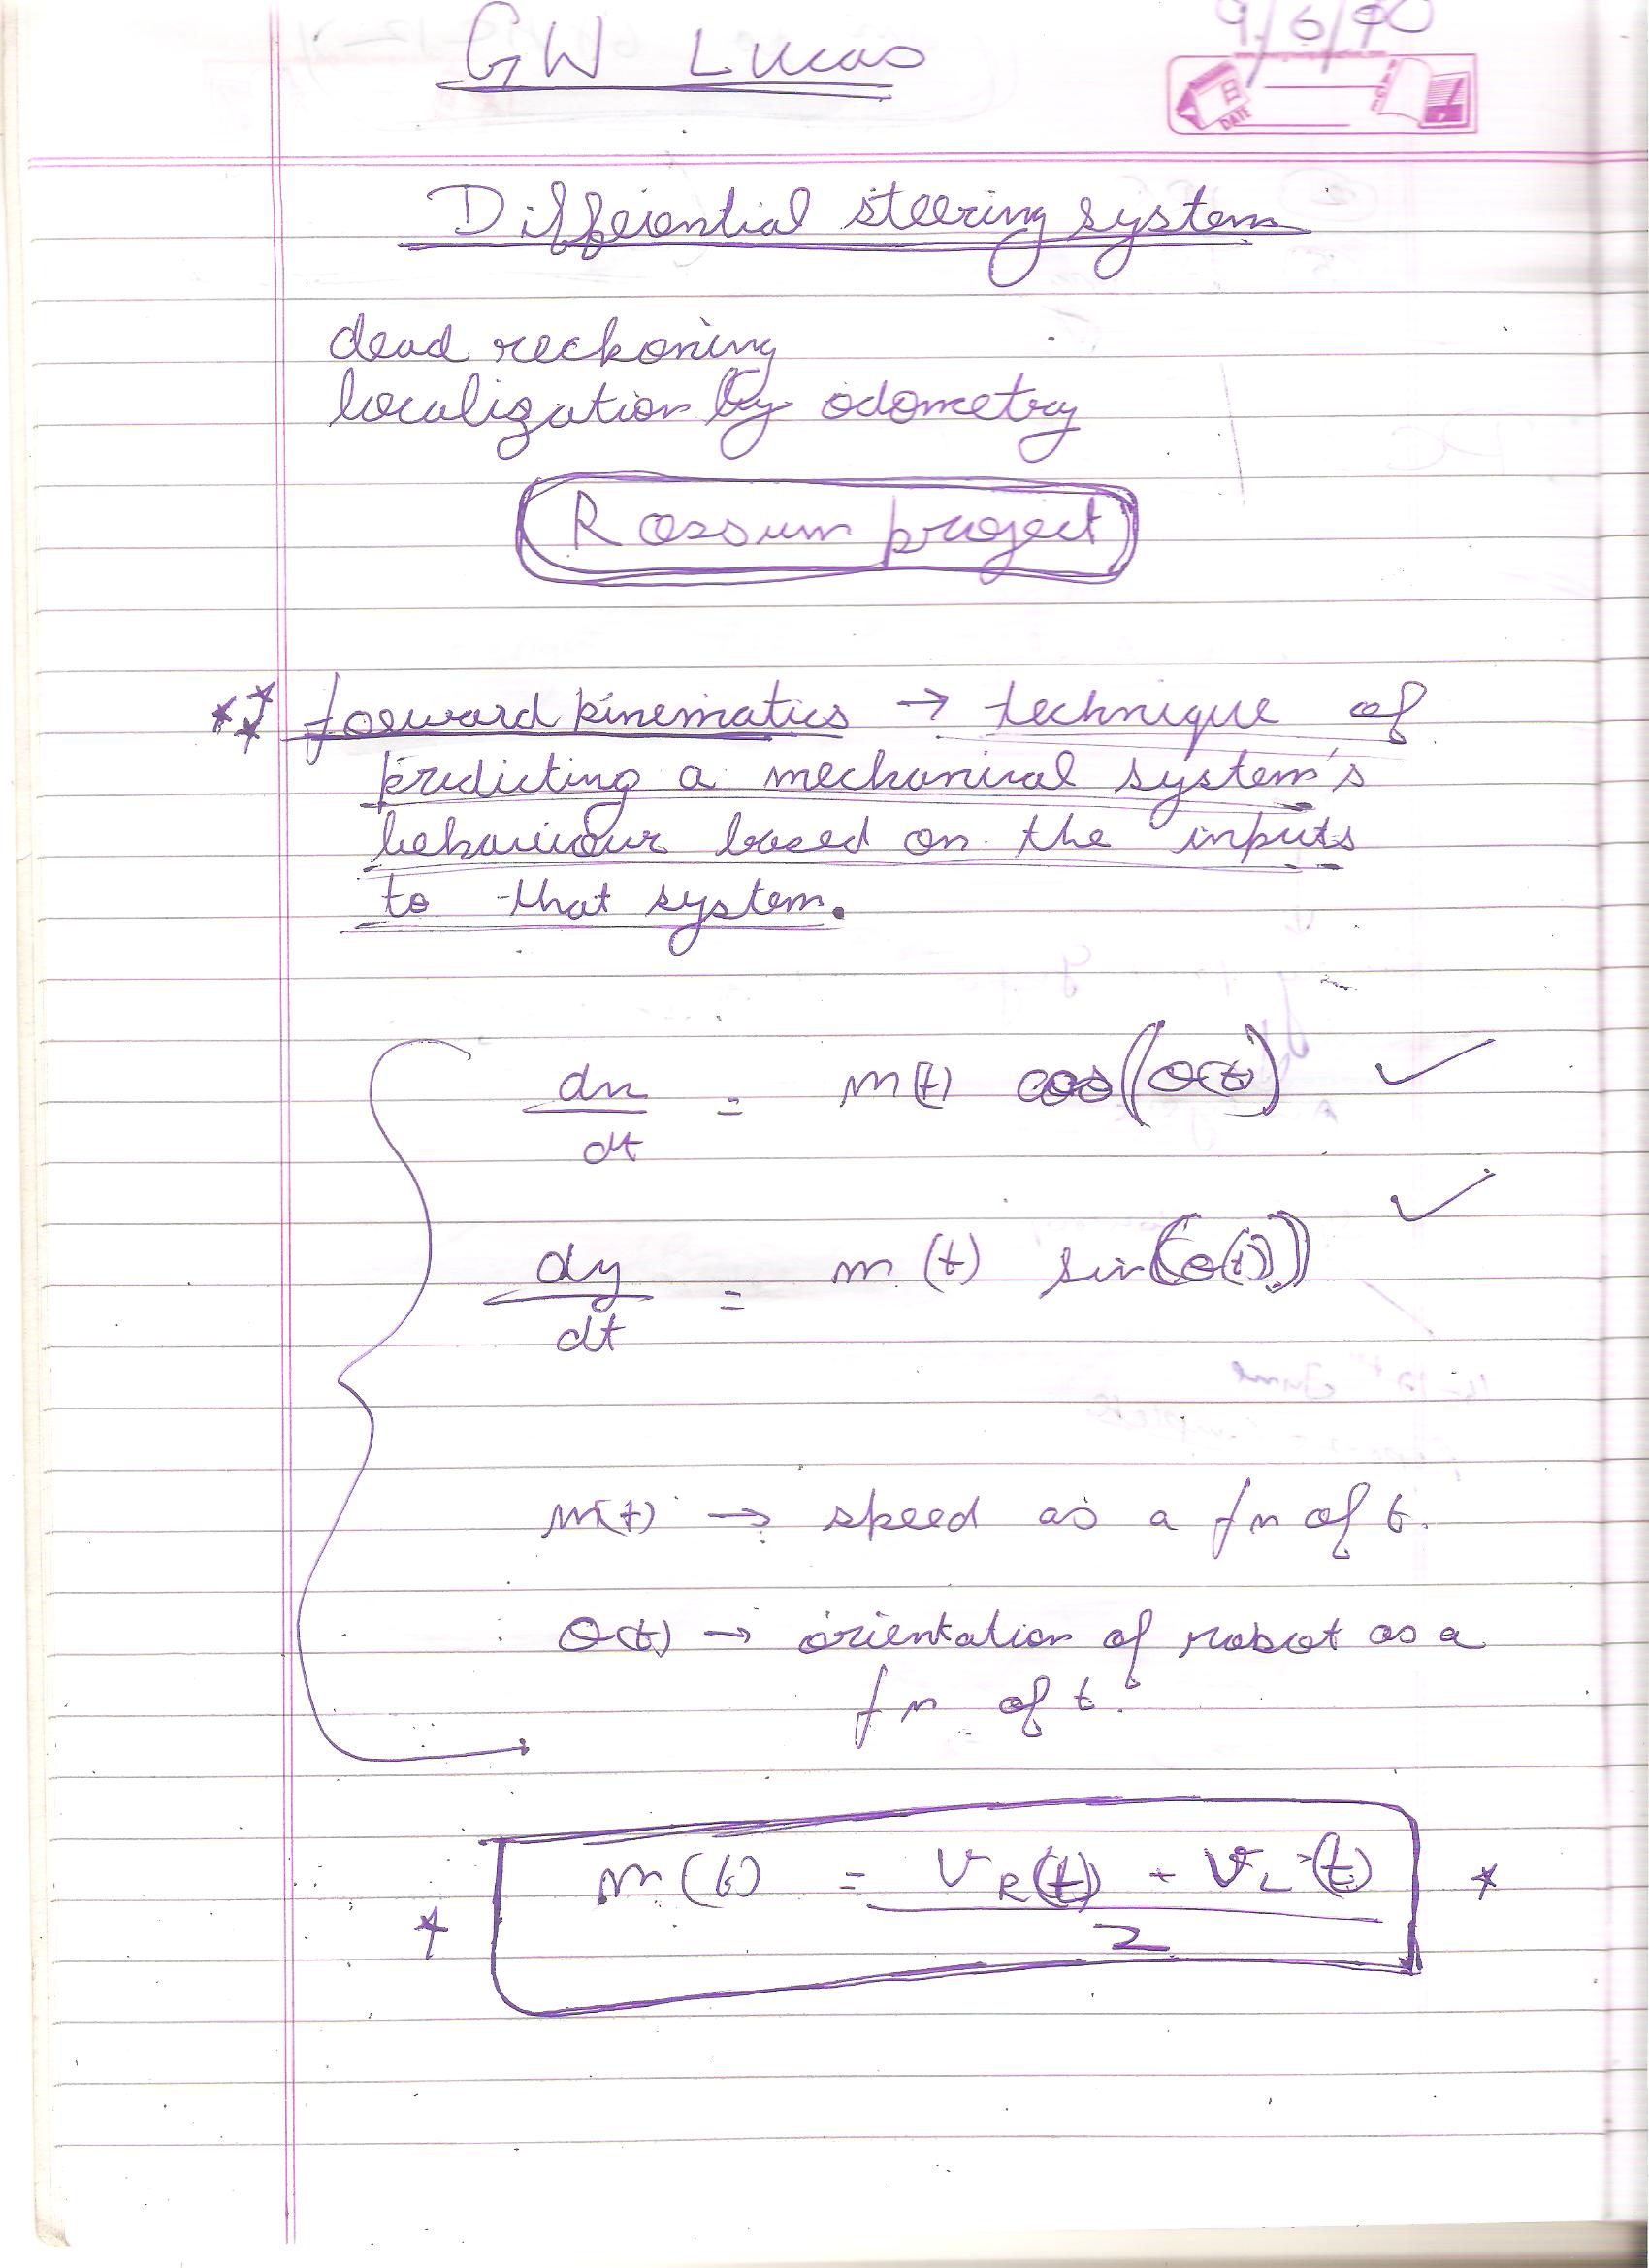 GW Lucas
9/6/
DATE
Differential steering system
dead reckoning
localization by odometry
Rossum project
forward kinematics → technique of
predicting a mechanical system's
behaviour based on the inputs
to that system.
dx/dt = m(t) cos(θ(t)) ✓
dy/dt = m(t) sin(θ(t)) ✓
m(t) → speed as a fn of t.
θ(t) → orientation of robot as a
fn of t.
* m(t) = (vR(t) + vL(t))/2 *